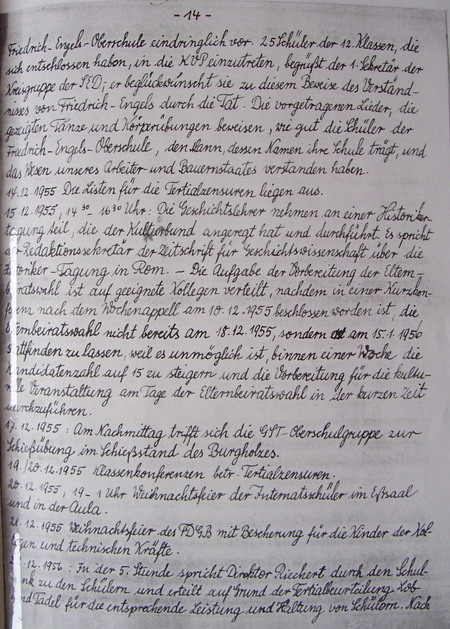 - 14 -
Friedrich-Engels-Oberschule eindringlich vor. 25 Schüler der 12. Klassen, die
sich entschlossen haben, in die KVP einzutreten, begrüßt der 1. Sekretär der
Kreisgruppe der SED; er beglückwünscht sie zu diesem Beweise des Verständ-
nisses von Friedrich-Engels durch die Tat. Die vorgetragenen Lieder, die
gezeigten Tänze und Körperübungen beweisen, wie gut die Schüler der
Friedrich-Engels-Oberschule, den Mann, dessen Namen ihre Schule trägt, und
das Wesen unseres Arbeiter- und Bauernstaates verstanden haben.
14.12.1955 Die Listen für die Tertialzensuren liegen aus.
15.12.1955, 14³⁰-16³⁰ Uhr: Die Geschichtslehrer nehmen an einer Historiker-
tagung teil, die der Kulturbund angeregt hat und durchführt. Es spricht
Redaktionssekretär der Zeitschrift für Geschichtswissenschaft über die
Historiker-Tagung in Rom. – Die Aufgabe der Vorbereitung der Eltern-
beiratswahl ist auf geeignete Kollegen verteilt, nachdem in einer Kurzkon-
ferenz nach dem Wochenappell am 10.12.1955 beschlossen worden ist, die
Elternbeiratswahl nicht bereits am 18.12.1955, sondern am 15.1.1956
stattfinden zu lassen, weil es unmöglich ist, binnen einer Woche die
Kandidatenzahl auf 15 zu steigern und die Vorbereitung für die kultu-
relle Veranstaltung am Tage der Elternbeiratswahl in der kurzen Zeit
durchzuführen.
17.12.1955: Am Nachmittag trifft sich die GST-Oberschulgruppe zur
Schießübung im Schießstand des Burgholzes.
19./20.12.1955 Klassenkonferenzen betr. Tertialzensuren.
20.12.1955, 19-1 Uhr Weihnachtsfeier der Internatsschüler im Eßsaal
und in der Aula.
21.12.1955 Weihnachtsfeier des FDGB mit Bescherung für die Kinder der Kol-
legen und technischen Kräfte.
12.1956: In der 5. Stunde spricht Direktor Riechert durch den Schul-
funk zu den Schülern und erteilt auf Grund der Tertialbeurteilung Lob
und Tadel für die entsprechende Leistung und Haltung von Schülern. Nach